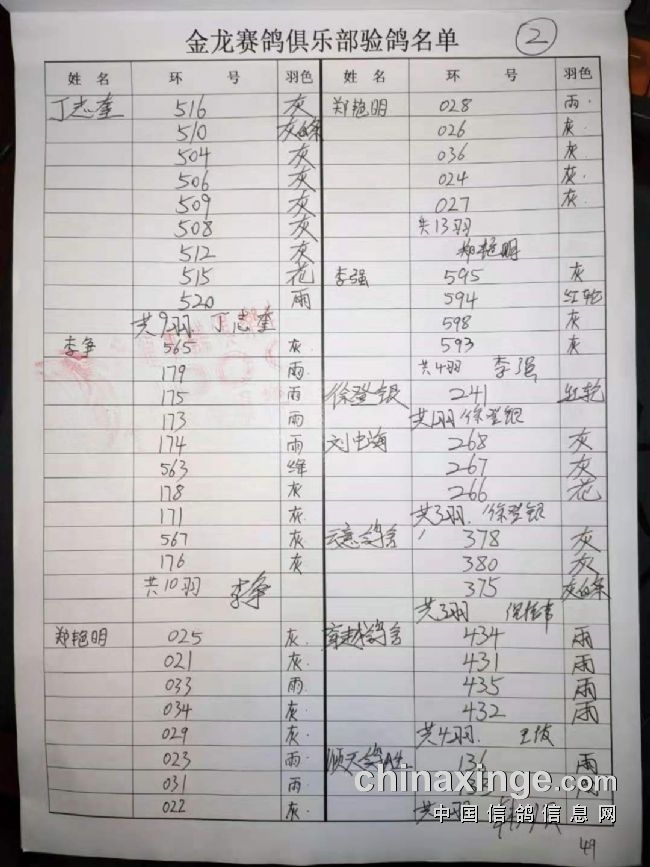 金龙赛鸽俱乐部验鸽名单
2
姓 名 环 号 羽色
丁志奎 516 灰
510 灰白条
504 灰
506 灰
509 灰
508 灰
512 灰
515 花
520 雨
共9羽 丁志奎
李争 565 灰
179 雨
175 雨
173 雨
174 雨
563 绛
178 灰
171 灰
567 灰
176 灰
共10羽 李争
郑艳明 025 灰
021 灰
033 雨
034 灰
029 灰
023 雨
031 雨
022 灰
姓 名 环 号 羽色
郑艳明 028 雨
026 灰
036 灰
024 灰
027 灰
共13羽
郑艳明
李强 595 灰
594 红轮
598 灰
593 灰
共4羽 李强
徐登银 241 红轮
共1羽 徐登银
刘中海 268 灰
267 灰
266 花
共3羽 徐登银
378 灰
380 灰
375 灰白条
共3羽
434 雨
431 雨
435 雨
432 雨
共4羽
136 雨
chinaxinge.com
中国信鸽信息网
49